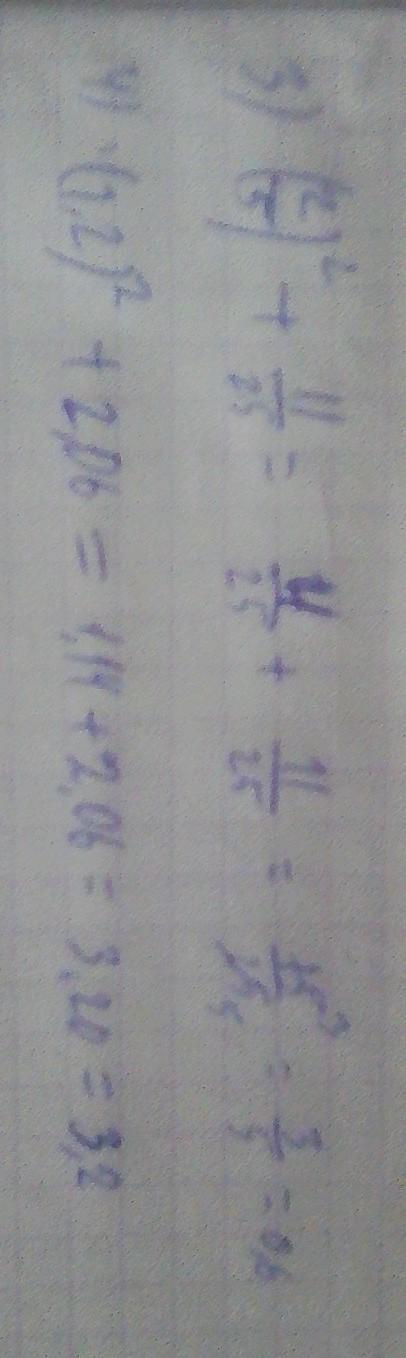 3) (2/5)² + 11/25 = 4/25 + 11/25 = 15³/25₅ = 3/5 = 0,6
4) (1,2)² + 2,06 = 1,14 + 2,06 = 3,20 = 3,2